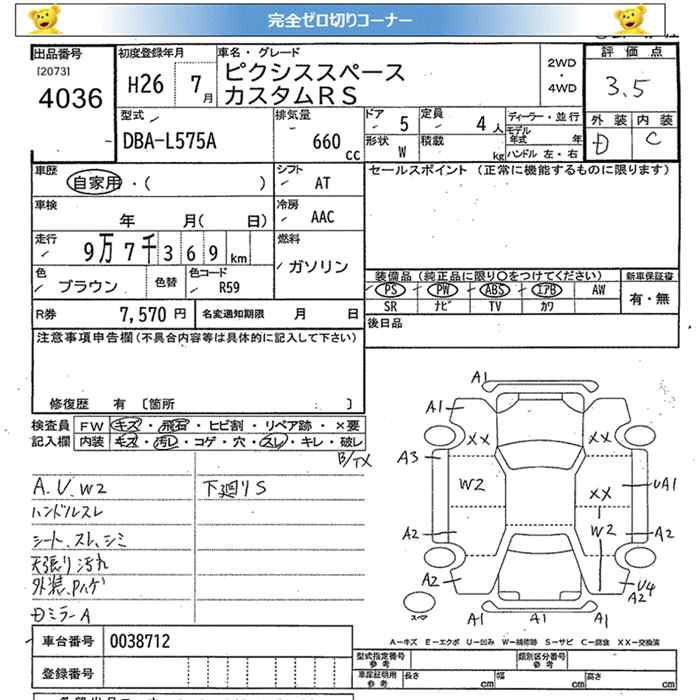 完全ゼロ切りコーナー
出品番号
[2073]
4036
初度登録年月
H26 7月
車名・グレード
ピクシススペース
カスタムRS
2WD
・
4WD
評価点
3.5
外装 内装
D C
型式
DBA-L575A
排気量
660 cc
ドア 5
定員 4人
形状 W
積載 kg
ディーラー・並行
モデル年式 年
ハンドル 左・右
車歴
自家用・( )
シフト AT
セールスポイント (正常に機能するものに限ります)
車検
年 月( 日)
冷房 AAC
走行
9万7千369km
燃料
ガソリン
色 ブラウン
色替
色コード R59
装備品(純正品に限り○をつけてください)
新車保証書
PS PW ABS エアB AW
有・無
SR ナビ TV カワ
R券 7,570円
名変通知期限 月 日
後日品
注意事項申告欄(不具合内容等は具体的に記入して下さい)
修復歴 有 〔箇所 〕
検査員
記入欄
FW キズ・飛石・ヒビ割・リペア跡・×要
内装 キズ・汚レ・コゲ・穴・スレ・キレ・破レ
B/TX
A.U.W2
下廻りS
ハンドルスレ
シート、スレ、シミ
天張り汚れ
外装、Pハゲ
Dミラー A
A1
A1
XX XX
A3
W2
XX
UA1
W2
A2 A2
A2
U4
A2
A1 A1 A1
スペア
A=キズ E=エクボ U=凹み W=補修跡 S=サビ C=腐食 XX=交換済
車台番号 0038712
登録番号
型式指定番号
参考
類別区分番号
参考
車庫証明用
参考
長さ cm
幅 cm
高さ cm